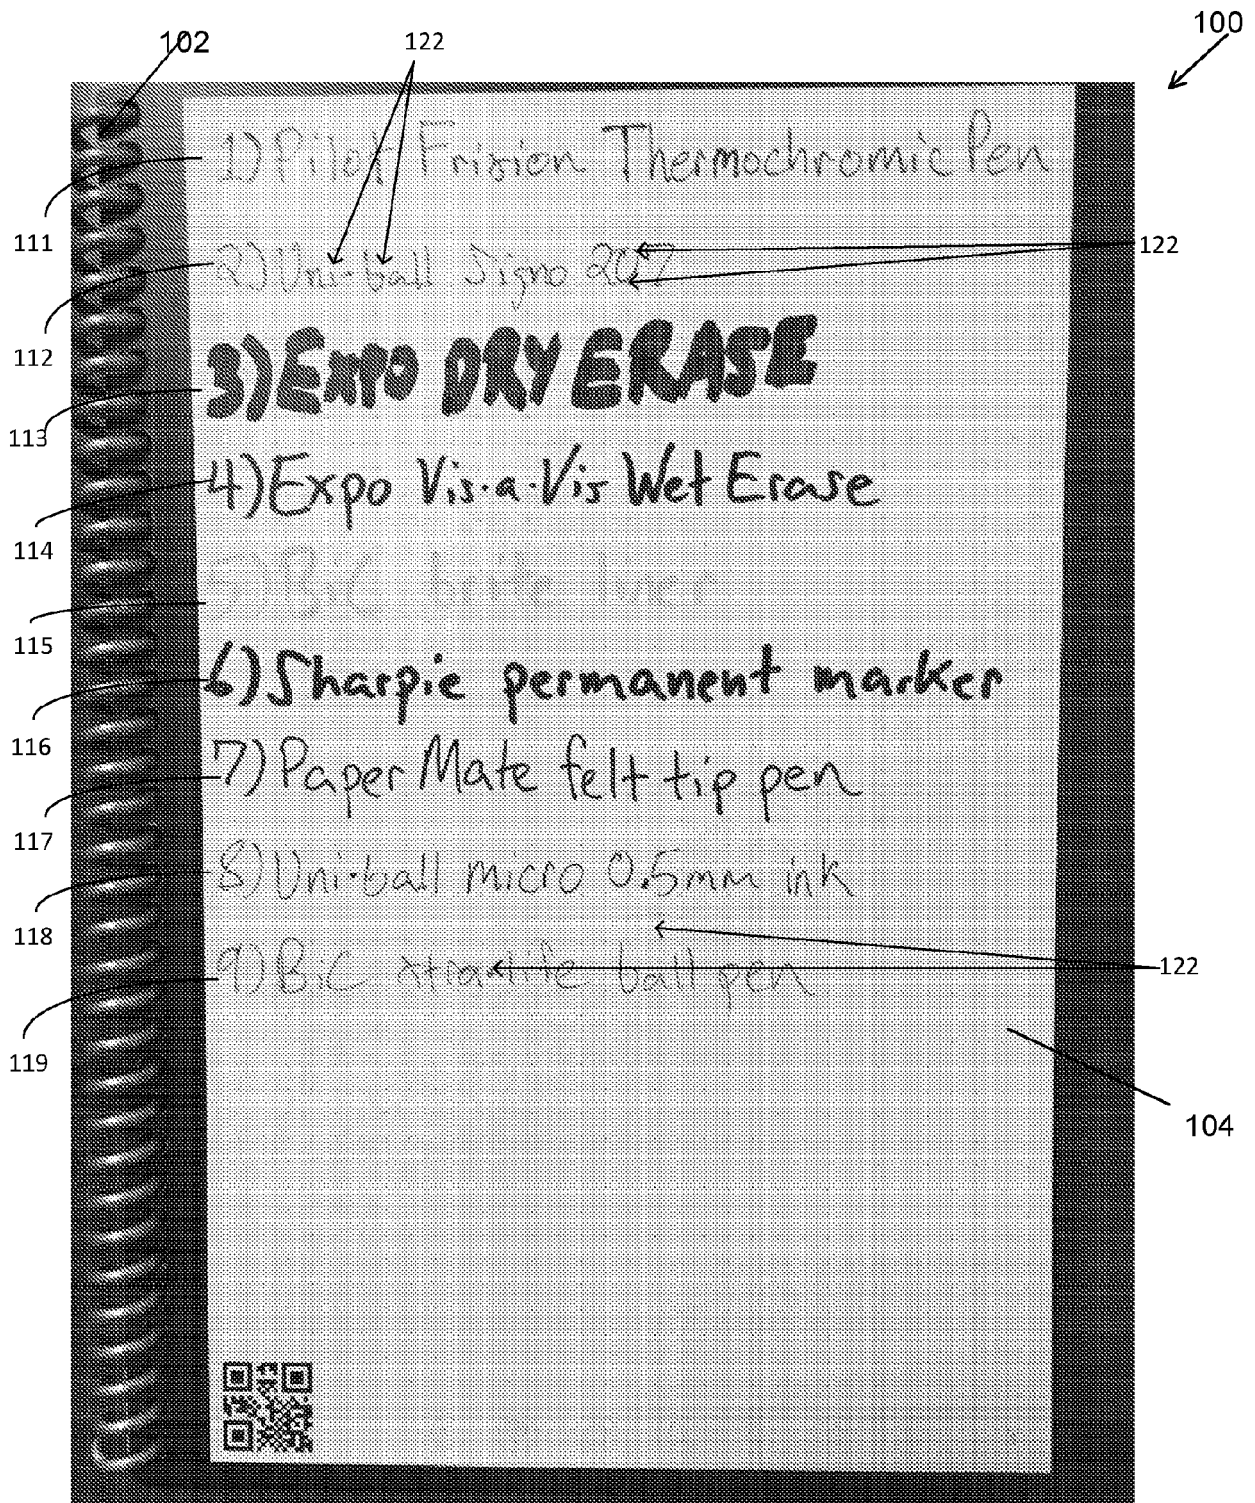 100
102
122
1) Pilot Frixion Thermochromic Pen
111
2) Uni-ball Signo 207
122
112
3) EXPO DRY ERASE
113
4) Expo Vis.a.Vis Wet Erase
114
5) BiC brite liner
115
6) Sharpie permanent marker
116
7) Paper Mate felt tip pen
117
8) Uni-ball micro 0.5mm ink
118
9) BiC xtra-life ball pen
122
119
104